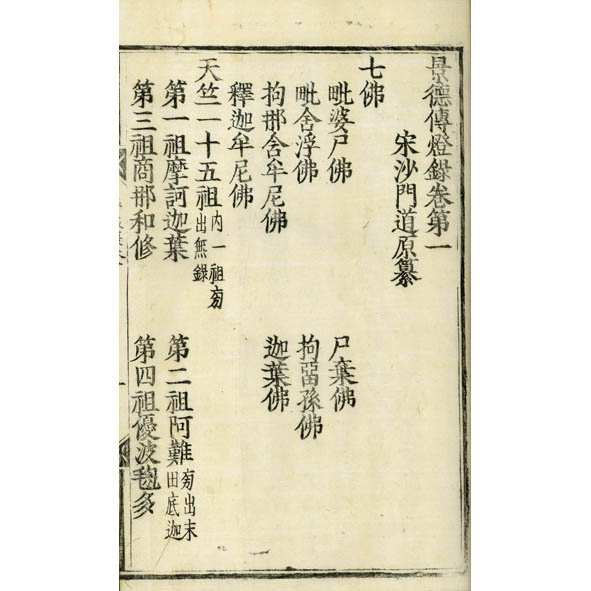 景德傳燈錄卷第一
宋沙門道原纂
七佛
毗婆尸佛 尸棄佛
毗舍浮佛 拘留孫佛
拘那舍牟尼佛 迦葉佛
釋迦牟尼佛
天竺一十五祖內一祖旁出無錄
第一祖摩訶迦葉 第二祖阿難旁出末田底迦
第三祖商那和修 第四祖優波毱多